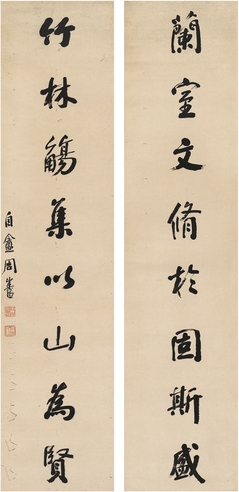 蘭室文脩於固斯盛
竹林觴集以山為賢
自盦周